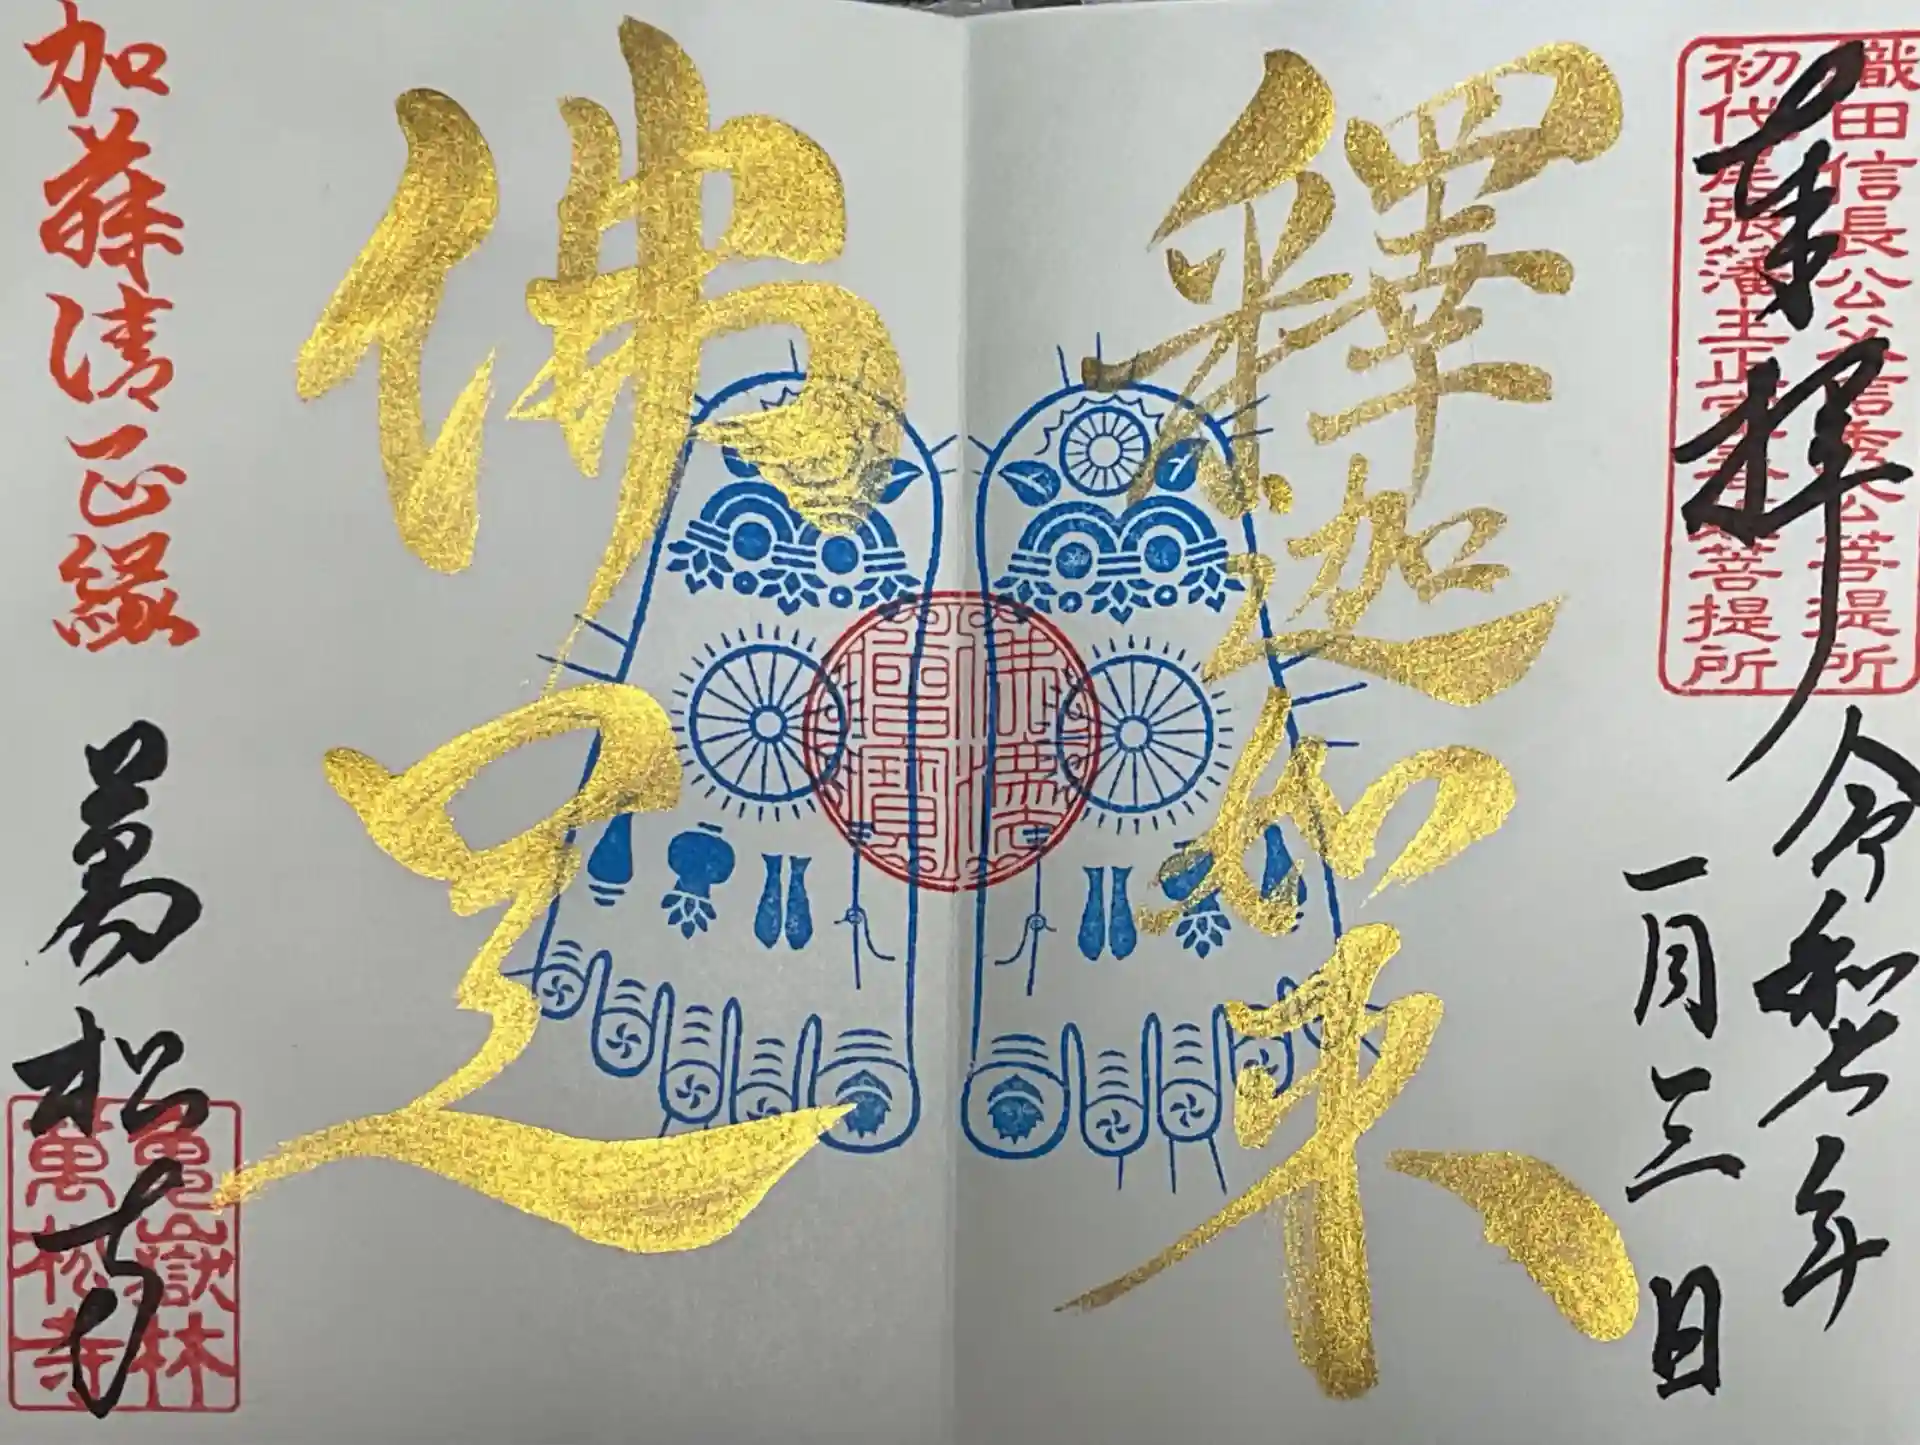 奉拝
織田信長公父信秀公菩提所
初代尾張藩主正室春姫菩提所
令和七年
一月三日
釋迦如来
佛足
加藤清正縁
萬松寺
亀嶽林
萬松寺